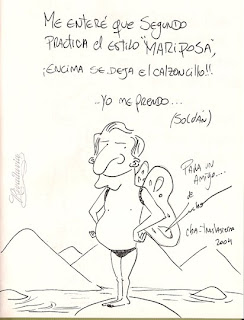 ME ENTERÉ QUE SEGUNDO
PRACTICA el ESTILO "MARIPOSA",
¡ENCIMA SE DEJA EL CALZONCILLO!!
..YO ME PRENDO...
(SOLDÁN)
PARA UN
AMIGO...
DE
2004